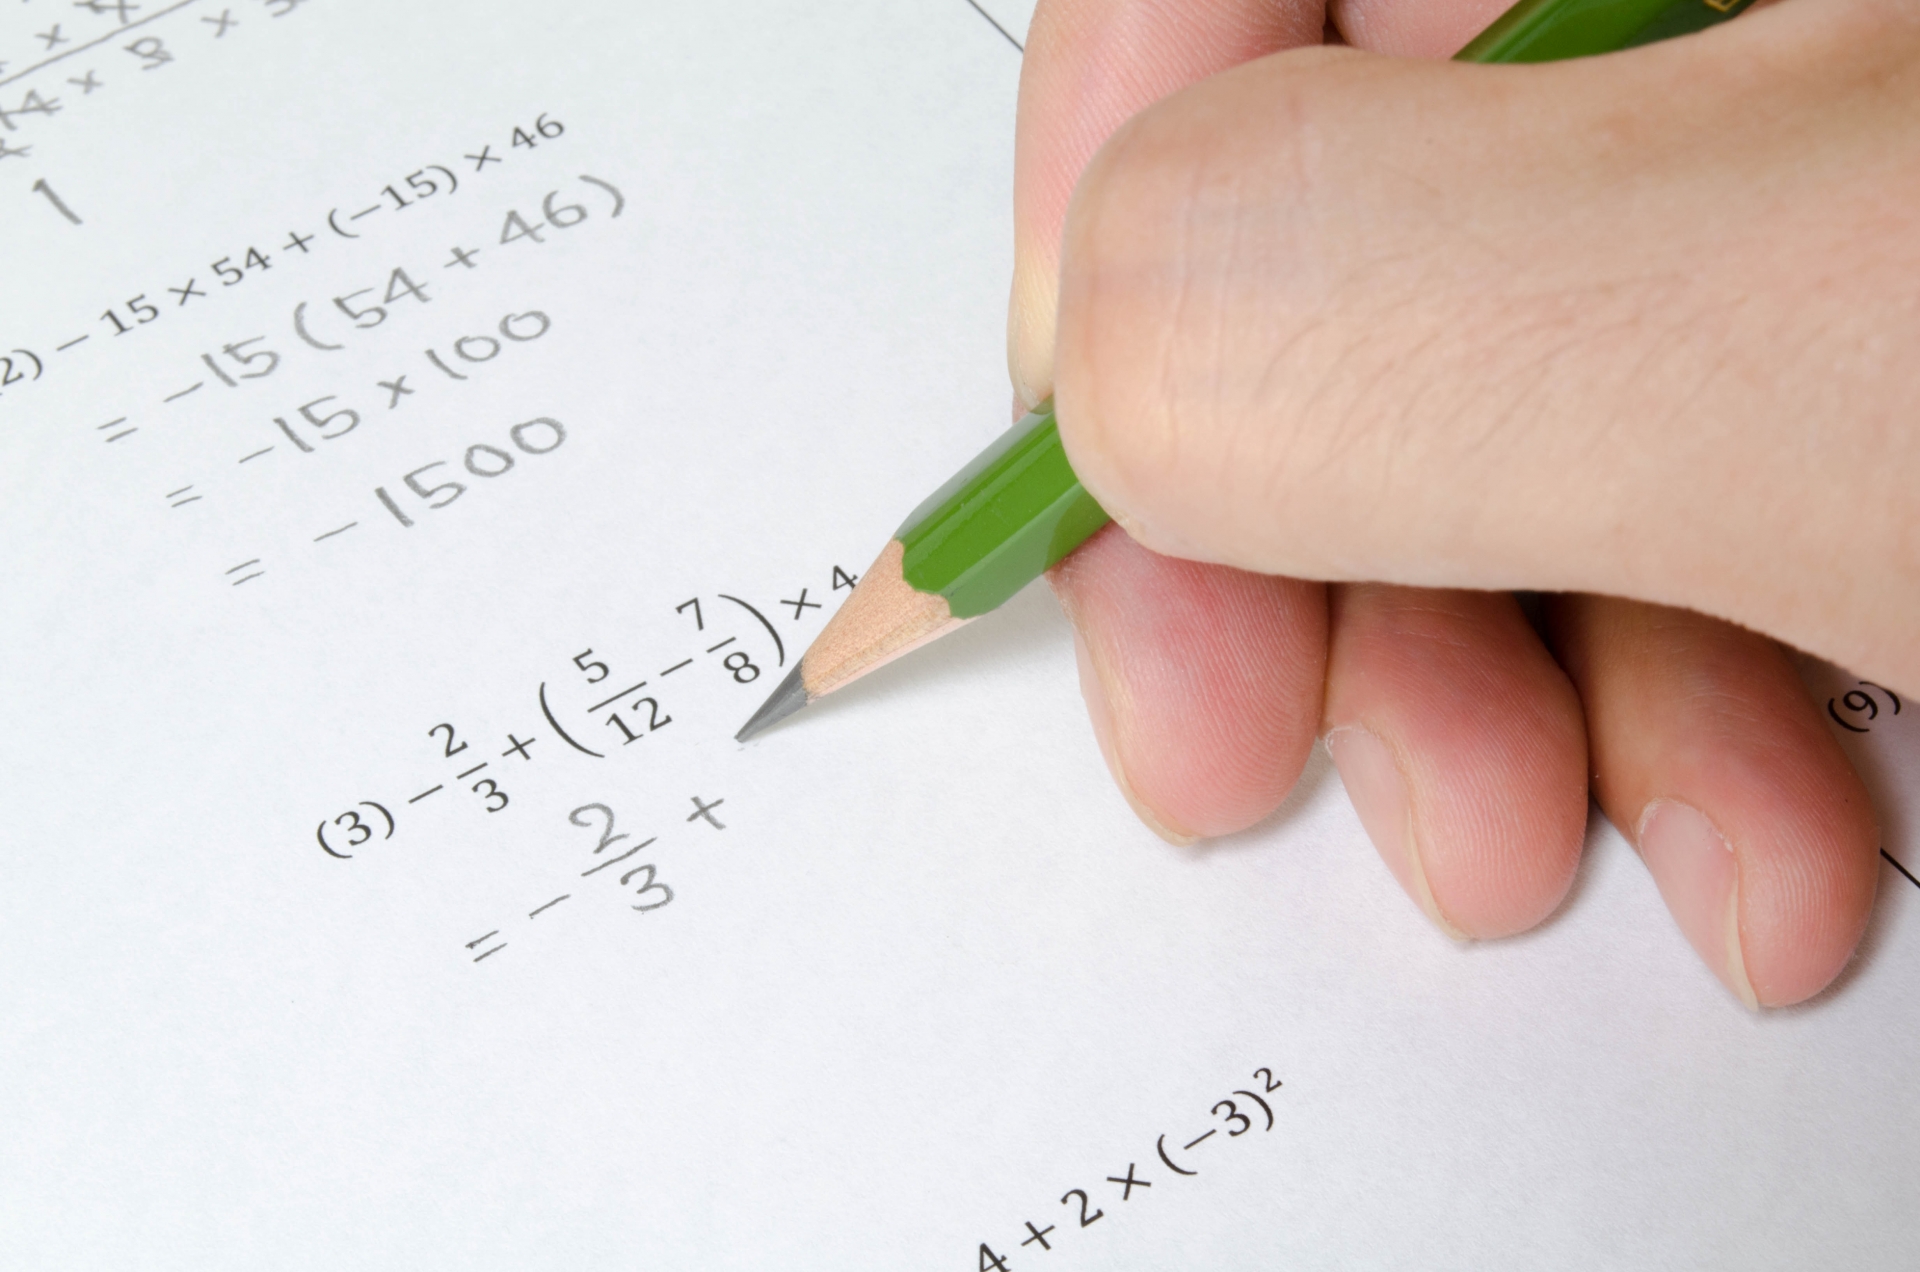 × 8 × 3
1
(2) − 15 × 54 + (−15) × 46
= −15 (54 + 46)
= −15 × 100
= −1500
(3) − 2/3 + (5/12 − 7/8) × 4
= − 2/3 +
(9)
4 + 2 × (−3)²